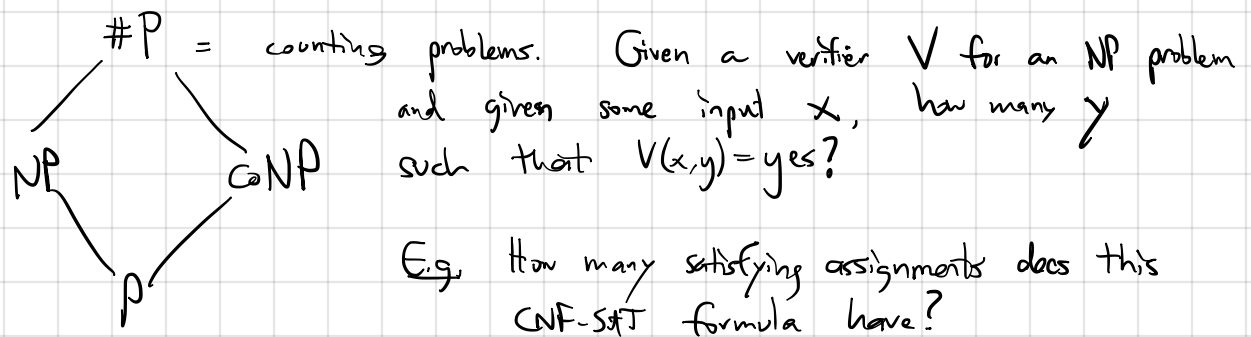 #P = counting problems. Given a verifier V for an NP problem
and given some input x, how many y
such that V(x,y)=yes?
NP
CoNP
E.g. How many satisfying assignments does this
CNF-SAT formula have?
P